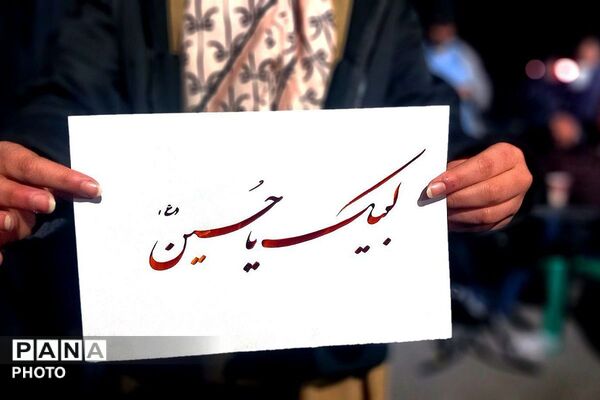 لبیک یا حسین (ع)
PANA
PHOTO